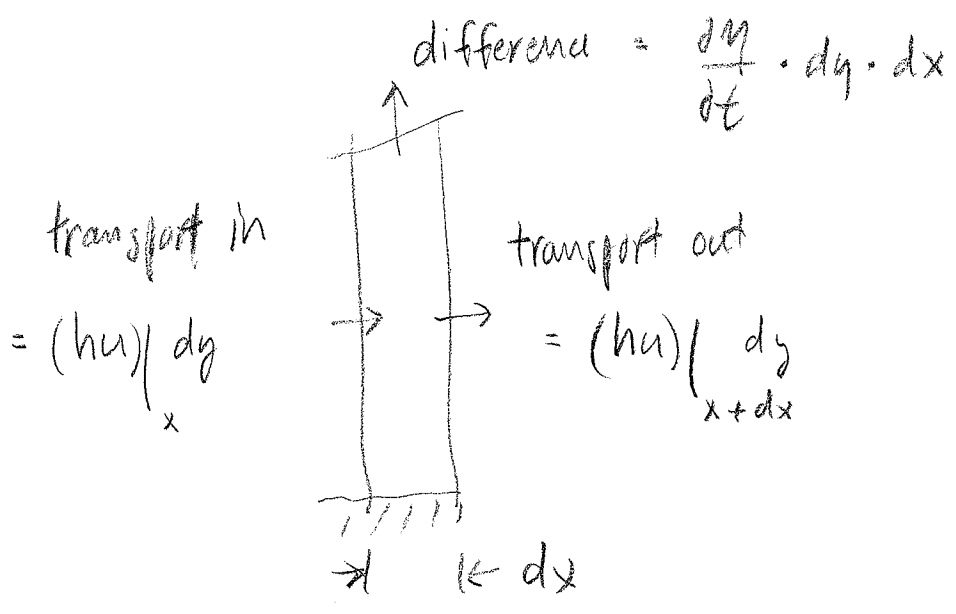 difference = ∂η/∂t · dy · dx
transport in
= (hu)|ₓ dy
transport out
= (hu)|ₓ₊dₓ dy
dx